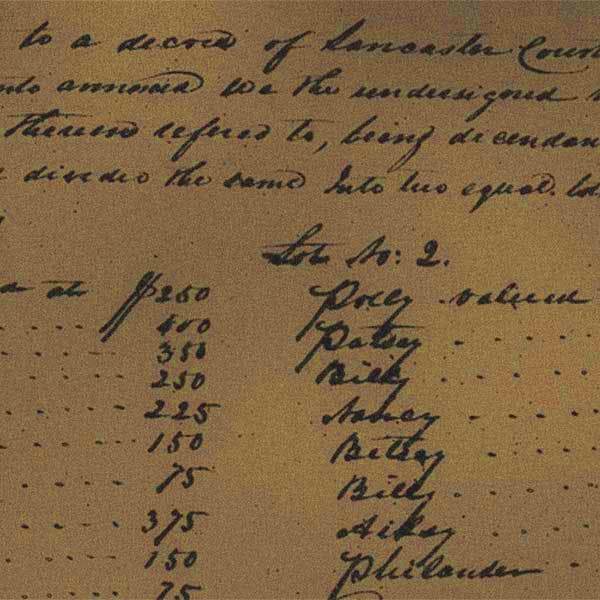 to a decred of Lancaster Court
annexed we the undersigned
therein refered to, being decendan
divided the same Into two equal lot
Lot No: 2.
at $250 Polly valued
400 Patsey
350 Billy
250 Nancy
225 Betsey
150 Billy
75
375 Philander
150
75